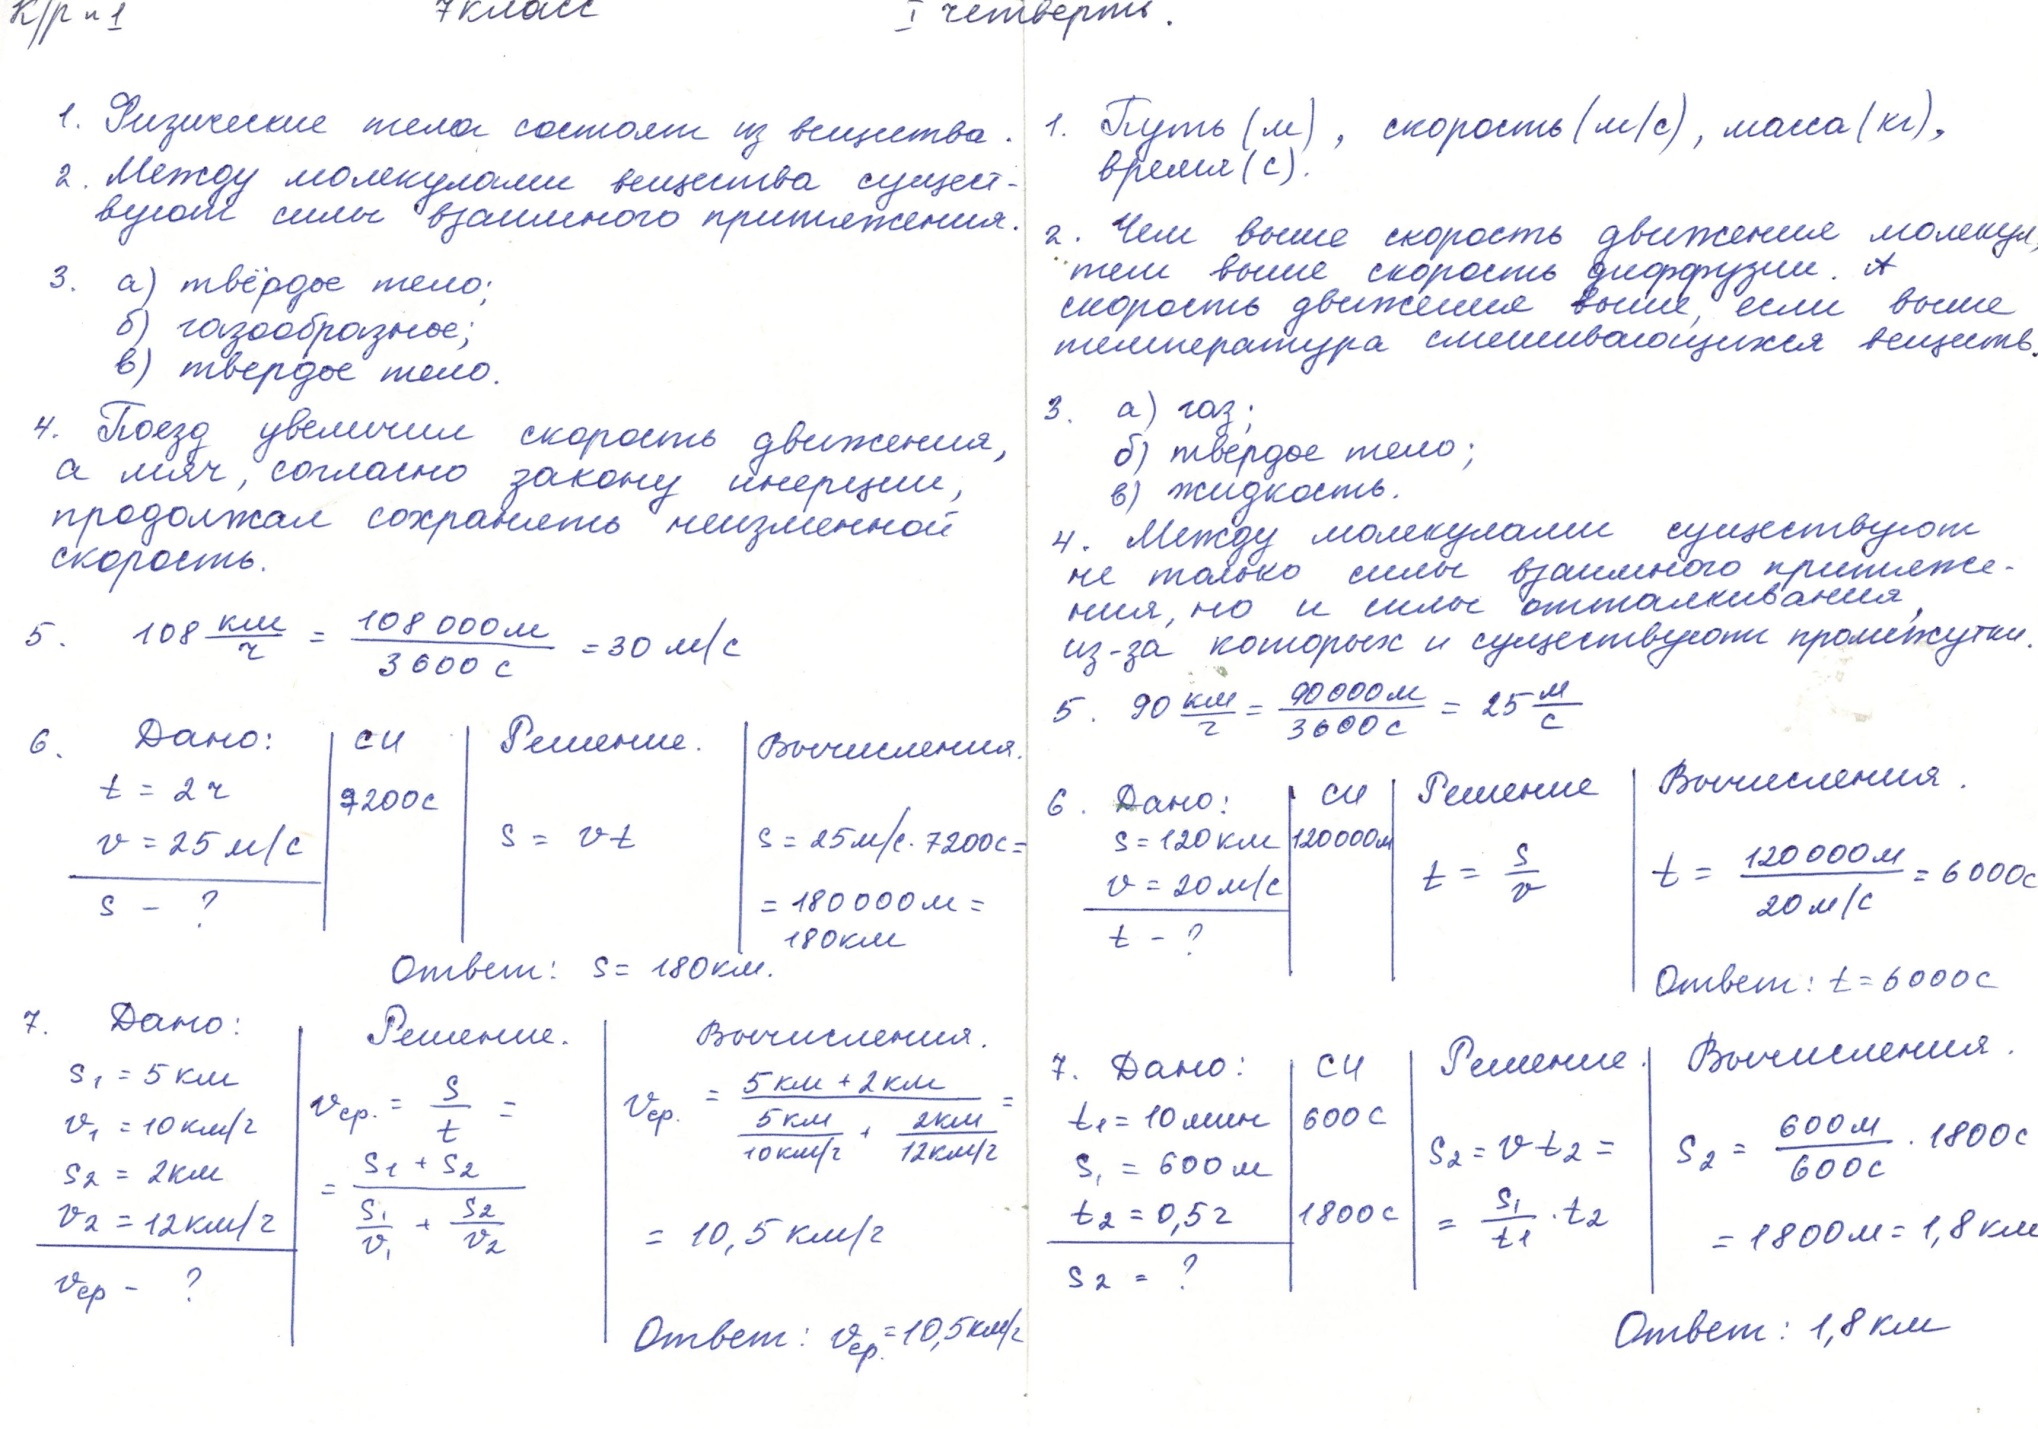 К/р №1 7 класс I четверть.
1. Физические тела состоят из вещества.
2. Между молекулами вещества сущест-
вуют силы взаимного притяжения.
3. а) твёрдое тело;
б) газообразное;
в) твердое тело.
4. Поезд увеличил скорость движения,
а мяч, согласно закону инерции,
продолжал сохранять неизменной
скорость.
5. 108 км/ч = 108 000м/3600 с = 30 м/с
6. Дано: СИ Решение. Вычисления.
t = 2 ч 7200с
v = 25 м/с s = vt s = 25м/с · 7200с =
s - ? = 180 000м =
180км
Ответ: s = 180км.
7. Дано: Решение. Вычисления.
s1 = 5 км vср. = s/t = vср. = (5 км + 2 км)/(5 км/10км/ч + 2км/12км/ч) =
v1 = 10км/ч
s2 = 2км = (s1 + s2)/(s1/v1 + s2/v2)
v2 = 12км/ч = 10,5 км/ч
vср - ?
Ответ: vср. = 10,5км/ч
1. Путь (м), скорость (м/с), масса (кг),
время (с).
2. Чем выше скорость движения молекул,
тем выше скорость диффузии. А
скорость движения выше, если выше
температура смешивающихся веществ.
3. а) газ;
б) твёрдое тело;
в) жидкость.
4. Между молекулами существуют
не только силы взаимного притяже-
ния, но и силы отталкивания,
из-за которых и существуют промежутки.
5. 90 км/ч = 90000м/3600с = 25 м/с
6. Дано: СИ Решение Вычисления.
s = 120км 120000м t = s/v t = 120000м/20м/с = 6000с
v = 20м/с
t - ?
Ответ: t = 6000с
7. Дано: СИ Решение. Вычисления.
t1 = 10 мин 600с
s1 = 600м s2 = v t2 = s2 = 600м/600с · 1800с
t2 = 0,5ч 1800с = s1/t1 · t2 = 1800м = 1,8км
s2 = ?
Ответ: 1,8км